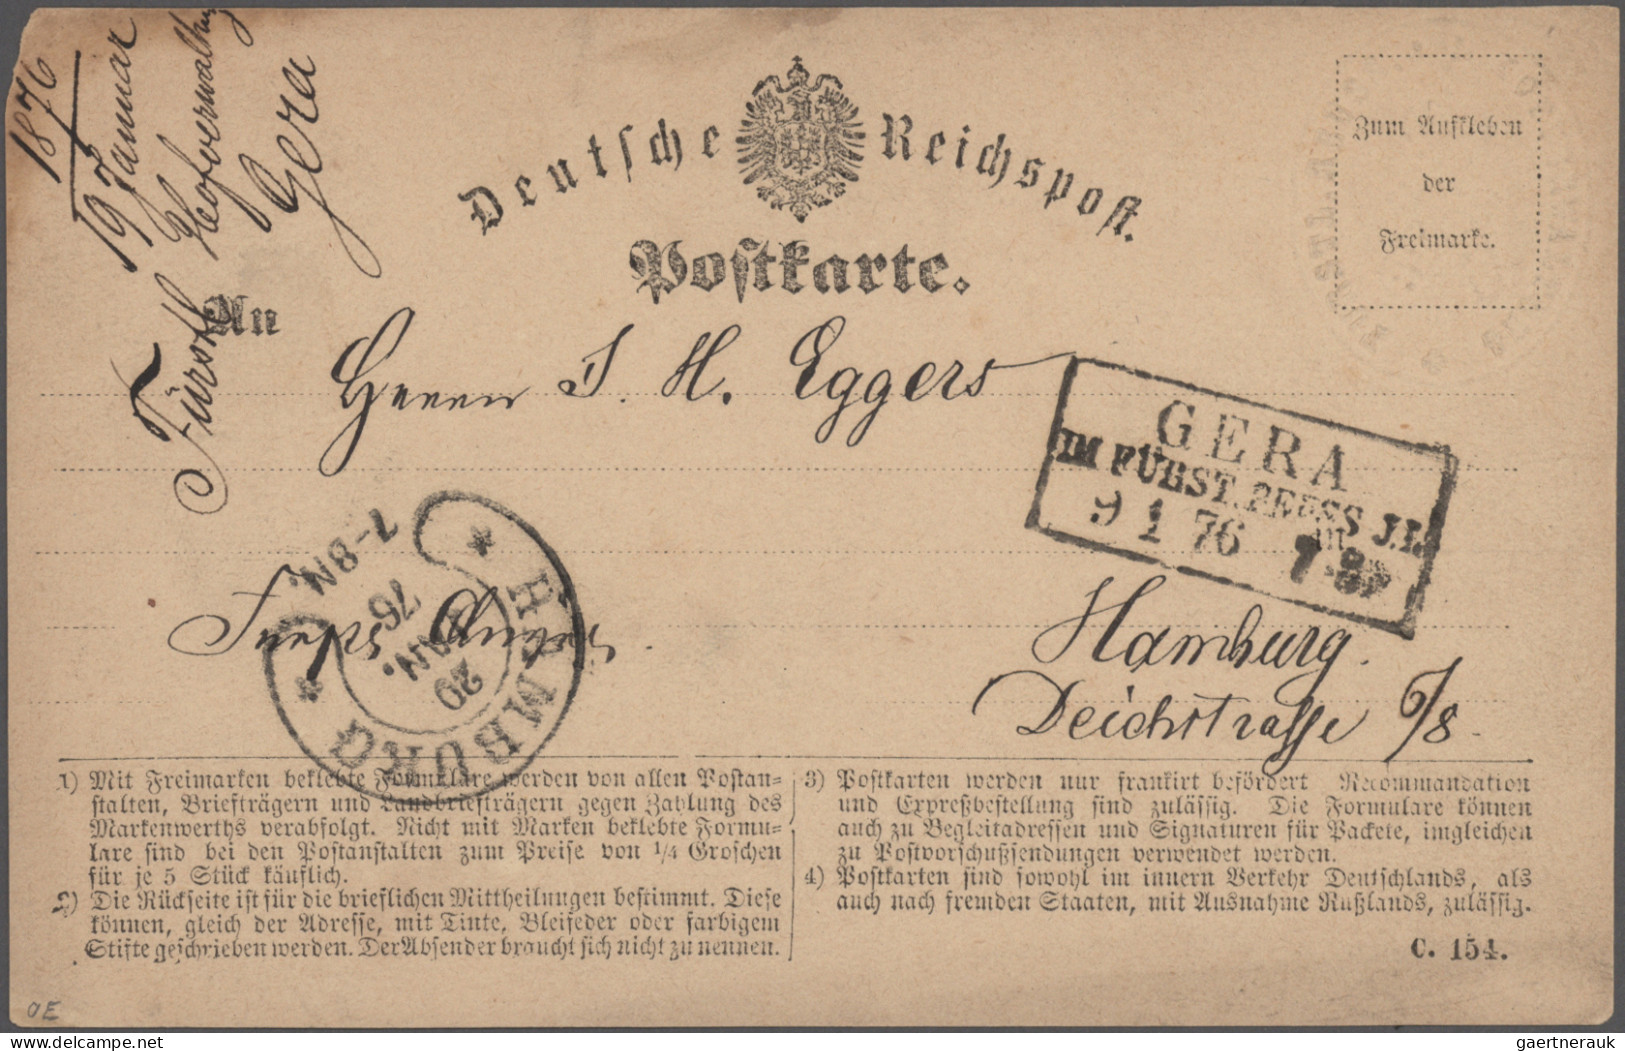 1876
19 Januar
Fürstl Hofverwaltung
Gera
Deutsche Reichspost.
Postkarte.
Zum Aufkleben
der
Freimarke.
An
Herrn J. H. Eggers
GERA
IM FÜRST. REUSS J.L.
9 1 76 7-8
HAMBURG
20
JAN.
76
7-8N.
Hamburg.
Deichstrasse 6/8.
1) Mit Freimarken beklebte Formulare werden von allen Postan-
stalten, Briefträgern und Landbriefträgern gegen Zahlung des
Markenwerths verabfolgt. Nicht mit Marken beklebte Formu-
lare sind bei den Postanstalten zum Preise von 1/4 Groschen
für je 5 Stück käuflich.
2) Die Rückseite ist für die brieflichen Mittheilungen bestimmt. Diese
können, gleich der Adresse, mit Tinte, Bleifeder oder farbigem
Stifte geschrieben werden. Der Absender braucht sich nicht zu nennen.
3) Postkarten werden nur frankirt befördert Recommandation
und Expreßbestellung sind zulässig. Die Formulare können
auch zu Begleitadressen und Signaturen für Packete, imgleichen
zu Postvorschußsendungen verwendet werden.
4) Postkarten sind sowohl im innern Verkehr Deutschlands, als
auch nach fremden Staaten, mit Ausnahme Rußlands, zulässig.
C. 154.
OE
gaertnerauk